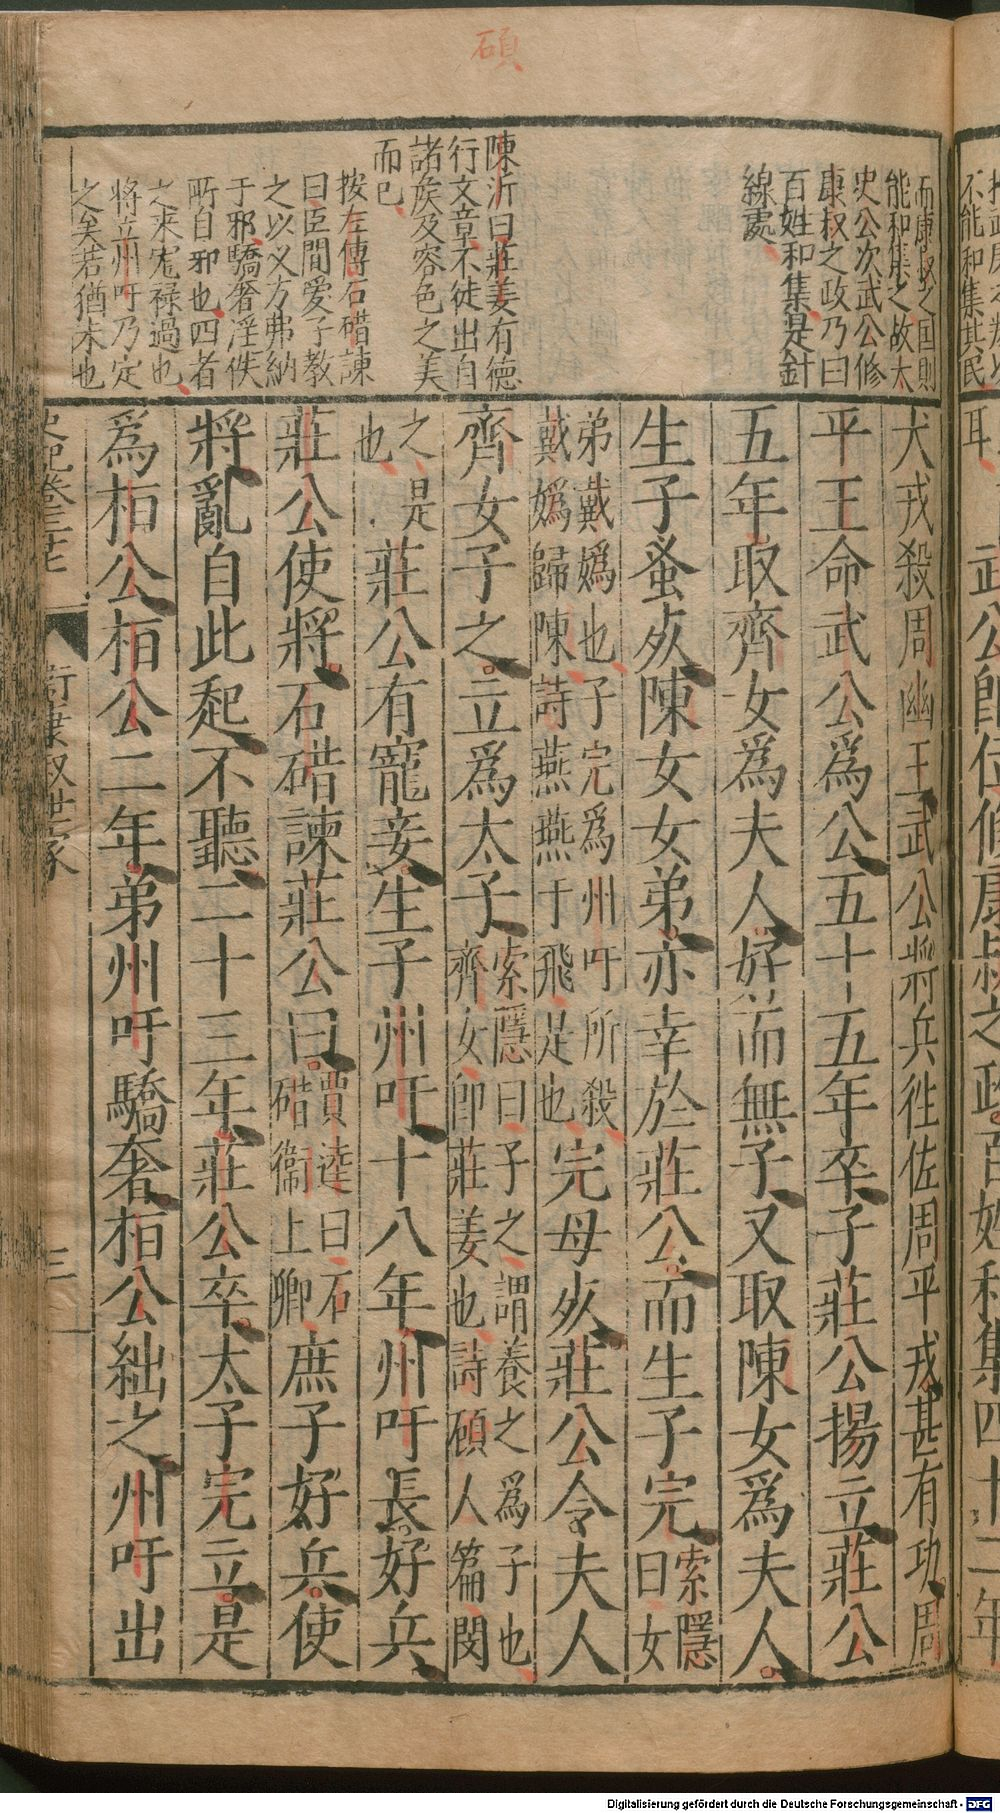 碩
而康叔之国則
能和集之故太
史公次武公修
康叔之政乃曰
百姓和集是針
線處
陳沂曰莊姜有德
行文章不徒出自
諸侯及容色之美
而已
按左傳石碏諫
曰臣聞愛子教
之以义方弗納
于邪驕奢淫佚
所自邪也四者
之来寵祿過也
將立州吁乃定
之矣若猶未也
犬戎殺周幽王武公將兵徃佐周平戎甚有功周
平王命武公爲公五十五年卒子莊公揚立莊公
五年取齊女爲夫人好而無子又取陳女爲夫人
生子蚤死陳女女弟亦幸於莊公而生子完索隱曰女
弟戴嬀也子完爲州吁所殺戴嬀歸陳詩燕燕于飛是也完母死莊公令夫人
齊女子之立爲太子索隱曰子之謂養之爲子也齊女卽莊姜也詩碩人篇閔
之是也莊公有寵妾生子州吁十八年州吁長好兵
莊公使將石碏諫莊公曰賈逵曰石碏衞上卿庶子好兵使
將亂自此起不聽二十三年莊公卒太子完立是
爲桓公桓公二年弟州吁驕奢桓公絀之州吁出
史記卷三十七
衛康叔世家
三
不能和集其民
耳
武公即位修康叔之政百姓和集四十二年
Digitalisierung gefördert durch die Deutsche Forschungsgemeinschaft - DFG